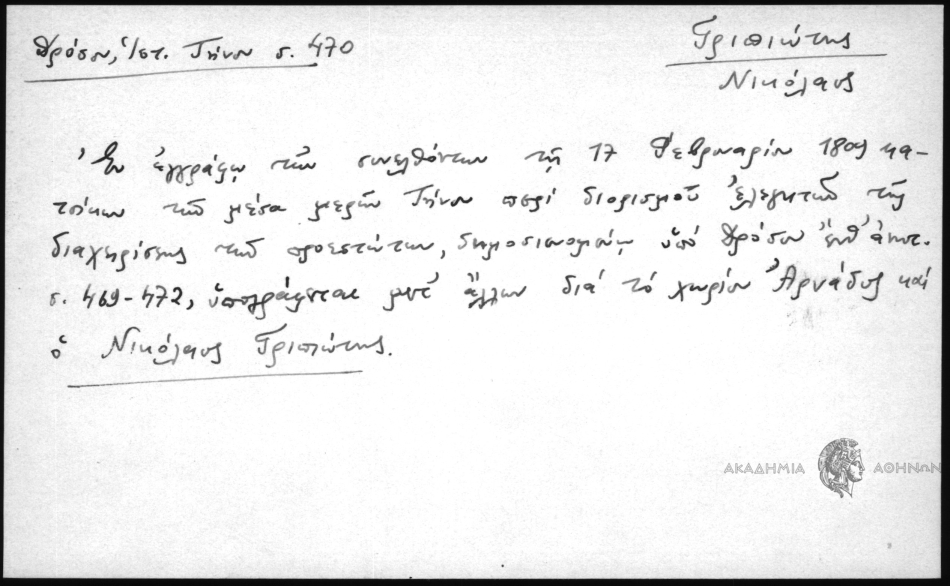 Δρόσου, Ἱστ. Τήνου σ. 470
Γριπιώτης
Νικόλαος
Ἐν ἐγγράφῳ τῶν συνελθόντων τῇ 17 Φεβρουαρίου 1809 κα-
τοίκων τῶν μέσα μερῶν Τήνου περὶ διορισμοῦ ἐλεγκτῶν τῆς
διαχειρίσεως τῶν προεστώτων, δημοσιευομένῳ ὑπὸ Δρόσου ἔνθ' ἀνωτ.
σ. 469-472, ὑπογράφεται μετ' ἄλλων διὰ τὸ χωρίον Ἀρνάδος καὶ
ὁ Νικόλαος Γριπιώτης.
ΑΚΑΔΗΜΙΑ ΑΘΗΝΩΝ